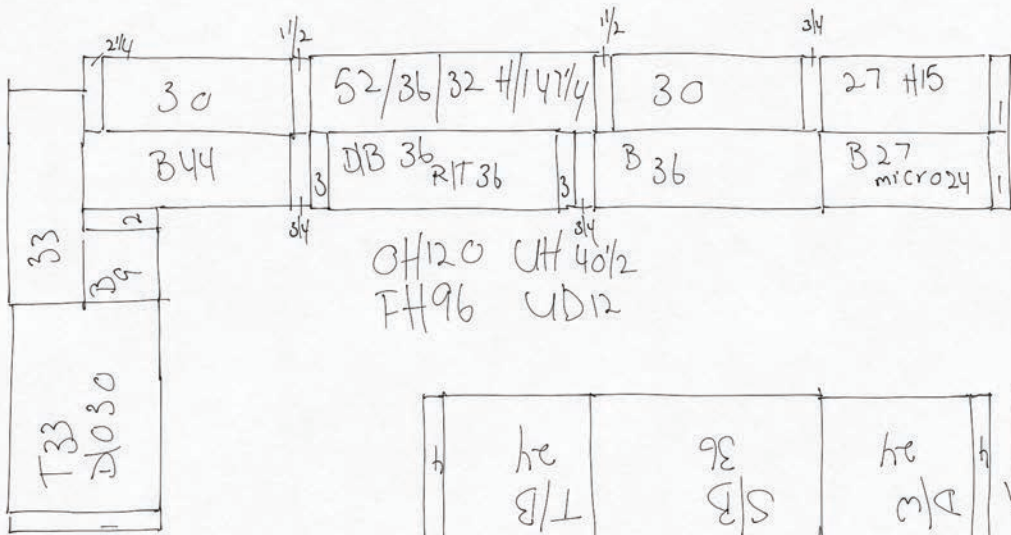 2 1/4
1 1/2
1 1/2
3/4
30
52/36/32 H/147 1/4
30
27 H15
1
B44
3
D/B 36
R/T 36
3
B 36
B 27
micro 24
1
3/4
3/4
33
2
B9
OH120 UH 40 1/2
FH96 UD12
T33
D/O30
4
24
T/B
36
S/B
24
D/W
4
1